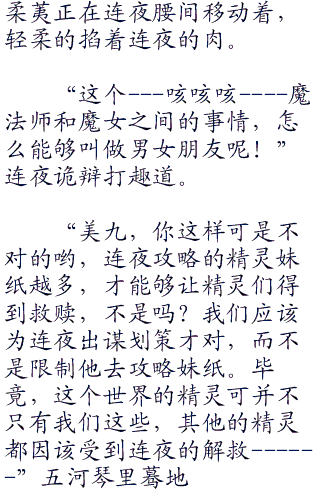 柔荑正在连夜腰间移动着，
轻柔的掐着连夜的肉。
“这个---咳咳咳----魔
法师和魔女之间的事情，怎
么能够叫做男女朋友呢！”
连夜诡辩打趣道。
“美九，你这样可是不
对的哟，连夜攻略的精灵妹
纸越多，才能够让精灵们得
到救赎，不是吗？我们应该
为连夜出谋划策才对，而不
是限制他去攻略妹纸。毕
竟，这个世界的精灵可并不
只有我们这些，其他的精灵
都因该受到连夜的解救-----
-”五河琴里蓦地